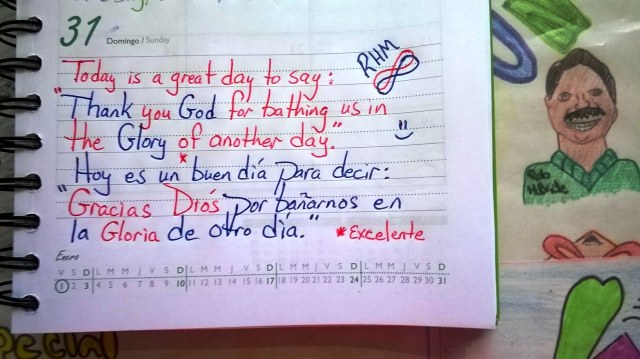 31 Domingo / Sunday
Today is a great day to say:
RHM
"Thank you God for bathing us in
the Glory of another day."
Hoy es un buen día para decir:
"Gracias Diós por bañarnos en
la Gloria de otro día." *Excelente
Enero
V S D L M M J V S D L M M J V S D L M M J V S D L M M J V S D
1 2 3 4 5 6 7 8 9 10 11 12 13 14 15 16 17 18 19 20 21 22 23 24 25 26 27 28 29 30 31